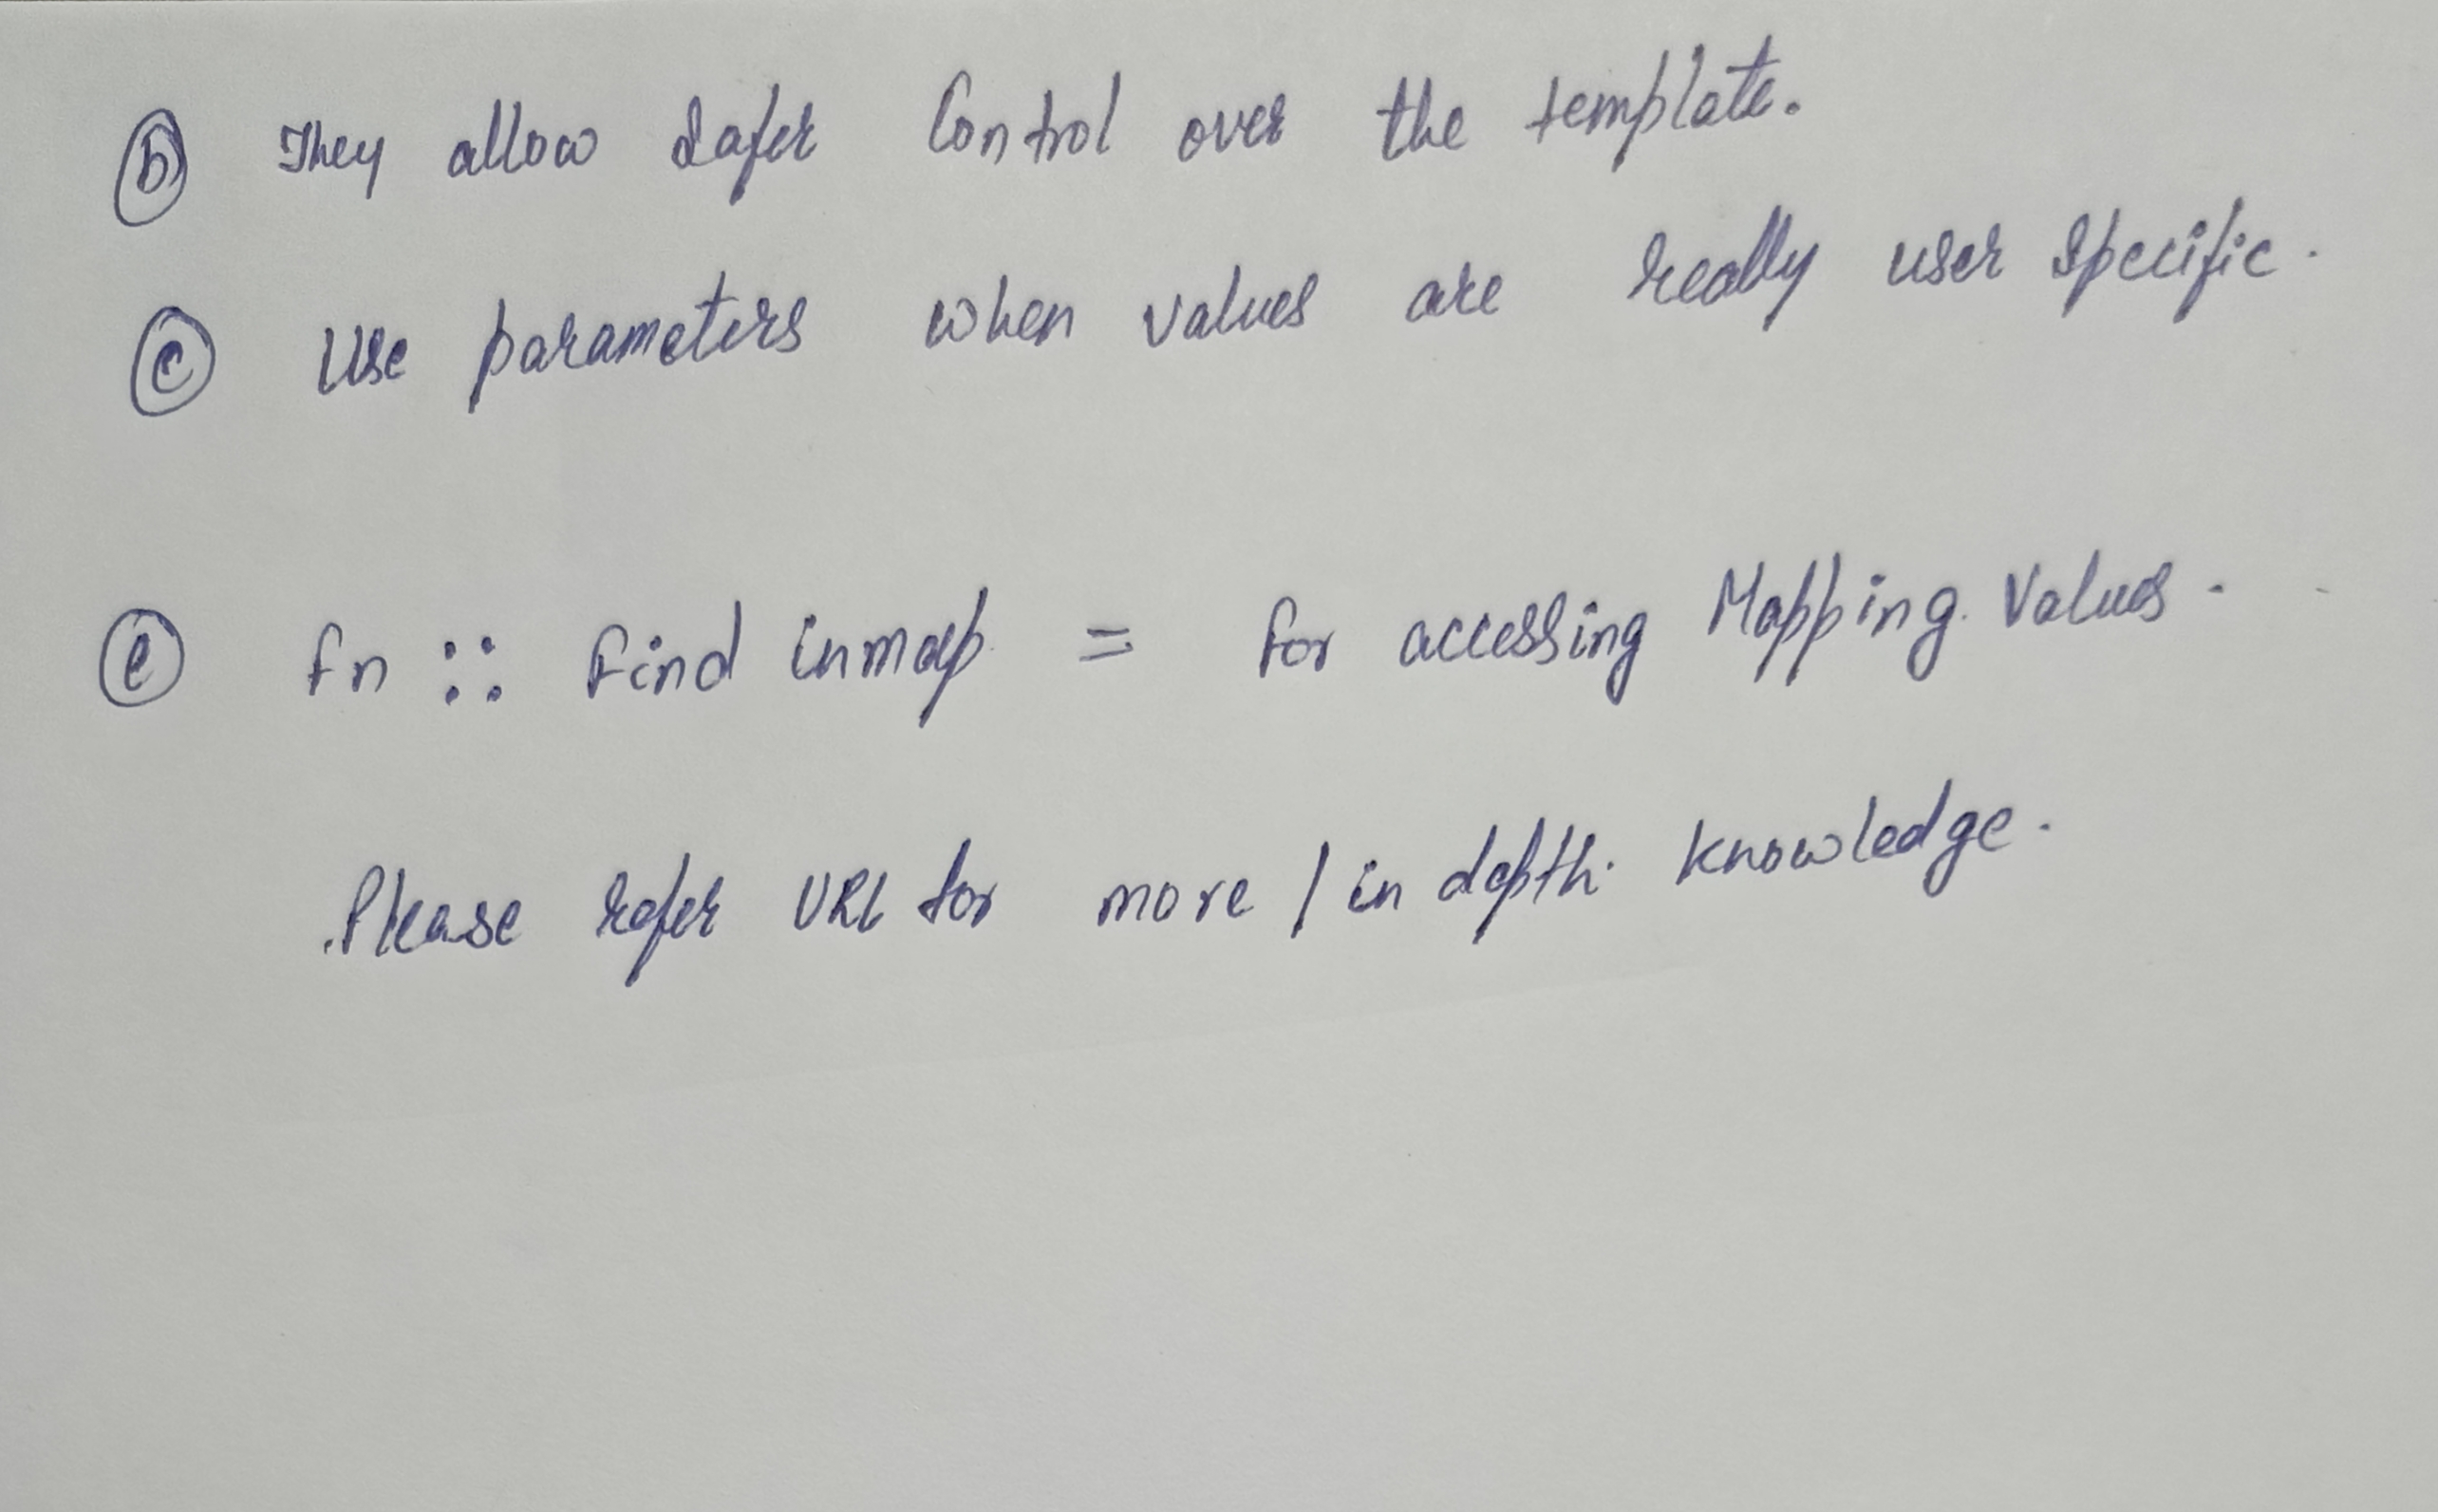 (b) They allow safer Control over the template.
(c) Use parameters when values are really user specific.
(e) fn :: Find inmap = for accessing Mapping Values.
Please refer URL for more / in depth knowledge.